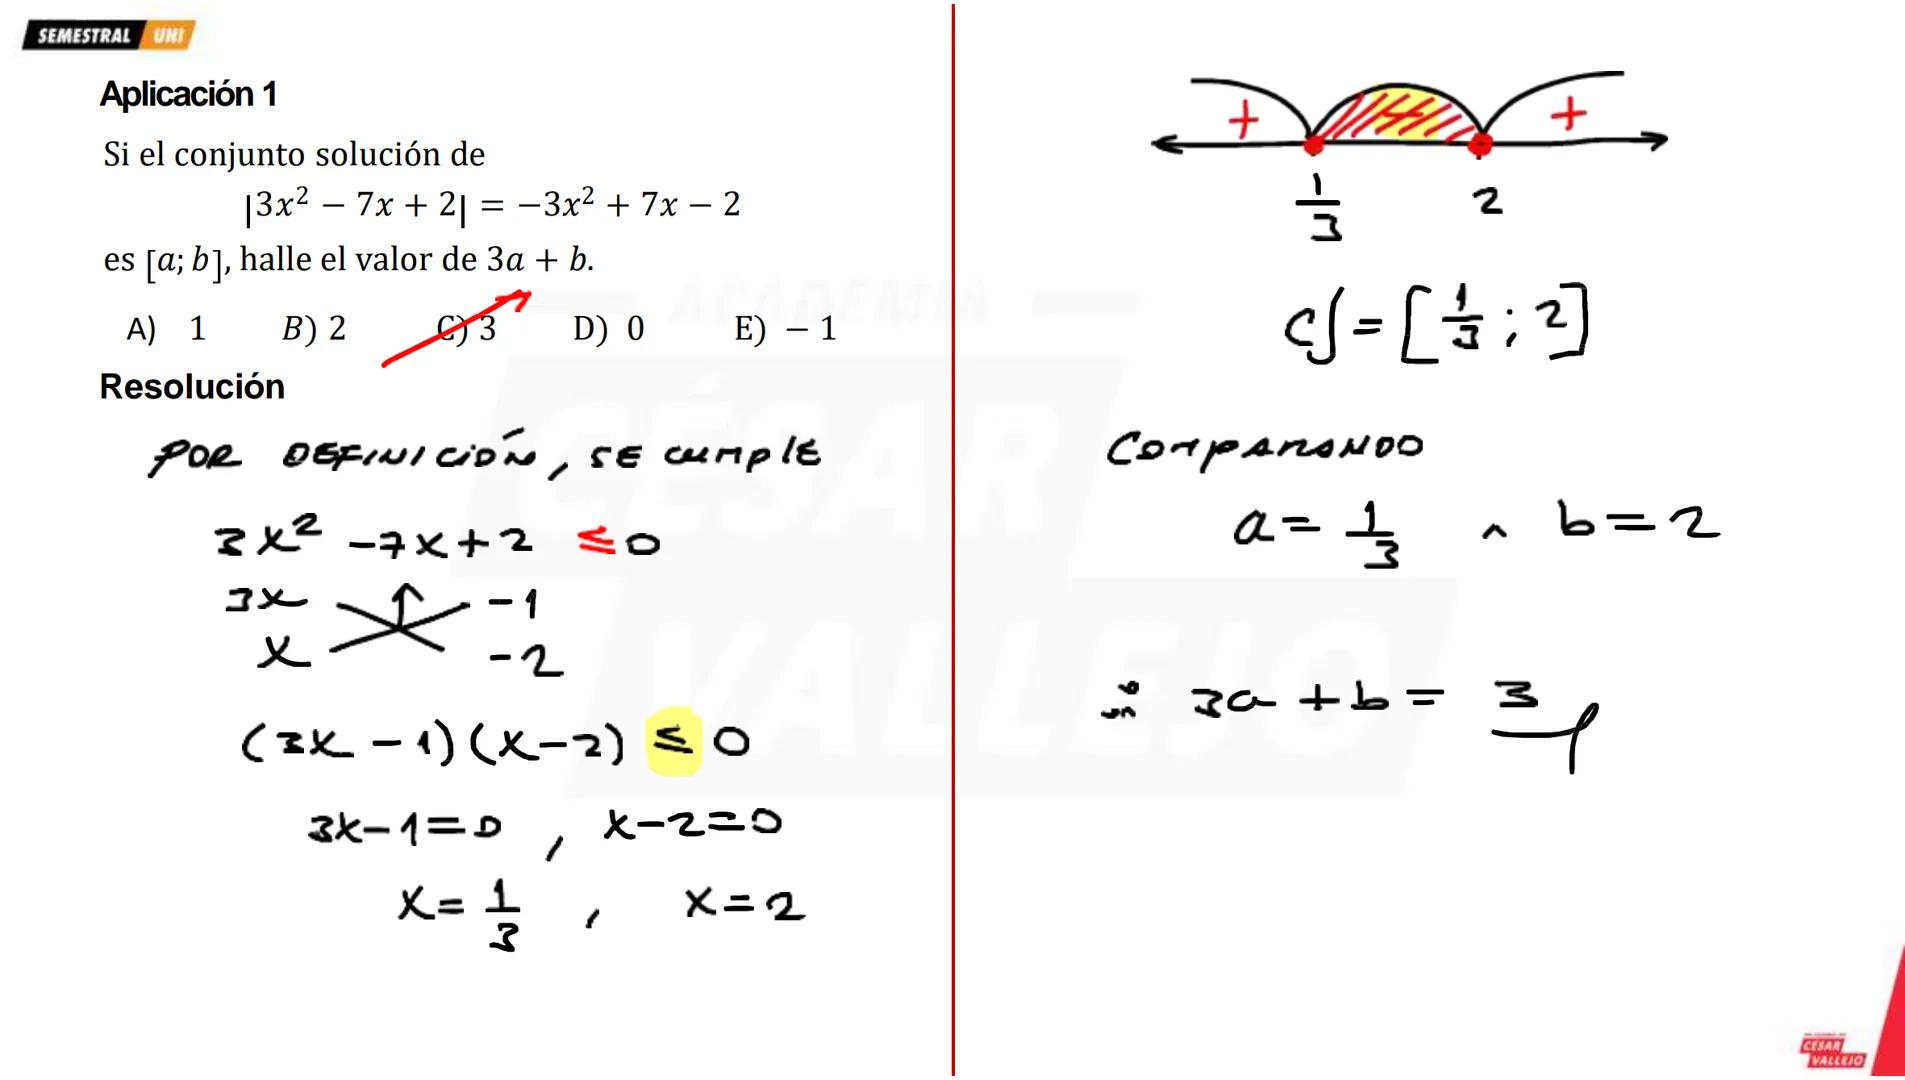 SEMESTRAL UNI
Aplicación 1
Si el conjunto solución de
|3x² − 7x + 2| = −3x² + 7x − 2
es [a; b], halle el valor de 3a + b.
A) 1 B) 2 C) 3 D) 0 E) − 1
Resolución
POR DEFINICIÓN, SE CUMPLE
3x² − 7x + 2 ≤ 0
3x −1
x −2
(3x − 1)(x − 2) ≤ 0
3x − 1 = 0 , x − 2 = 0
x = 1/3 , x = 2
+ − +
1/3 2
CS = [1/3 ; 2]
COMPARANDO
a = 1/3 ∧ b = 2
∴ 3a + b = 3
ACADEMIA
CÉSAR
VALLEJO
CÉSAR
VALLEJO